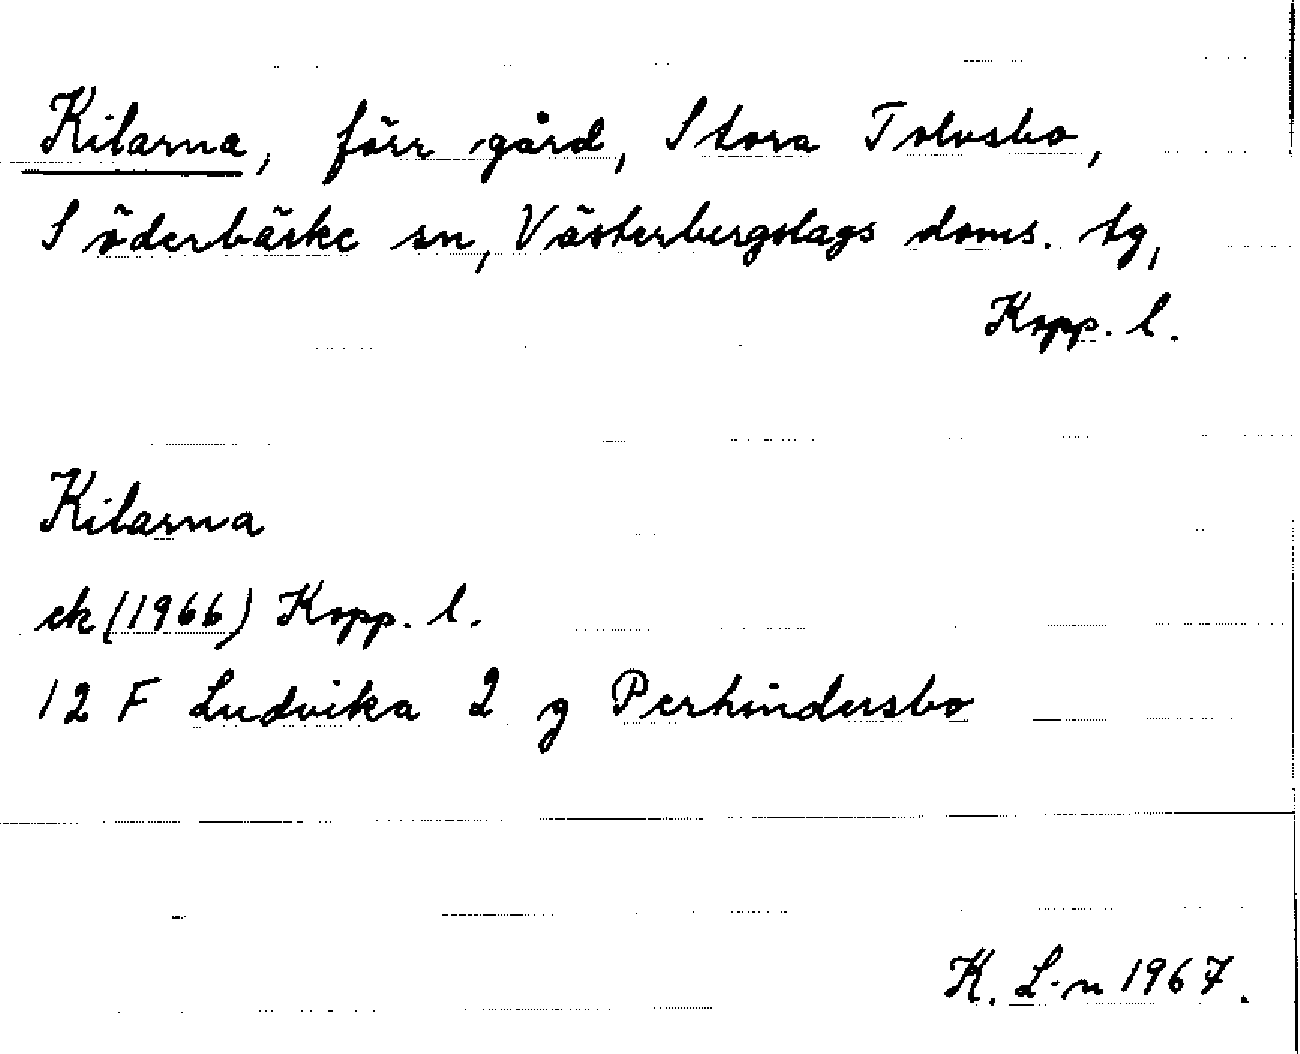 Kilarna, förr gård, Stora Tolvsbo,
Söderbärke sn, Västerbergslags doms. tg,
Kopp. l.
Kilarna
ek (1966) Kopp. l.
12 F Ludvika 2 g Perhindersbo
K. L-n 1967.